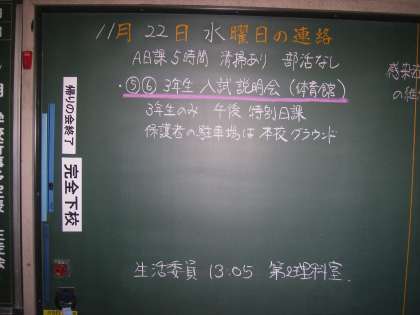 11月22日水曜日の連絡
AB課5時間 清掃あり 部活なし
・⑤⑥3年生 入試説明会(体育館)
3年生のみ 午後 特別日課
保護者の駐車場は本校グラウンド
帰りの会終了
完全下校
生活委員 13:05 第2理科室
感染
の